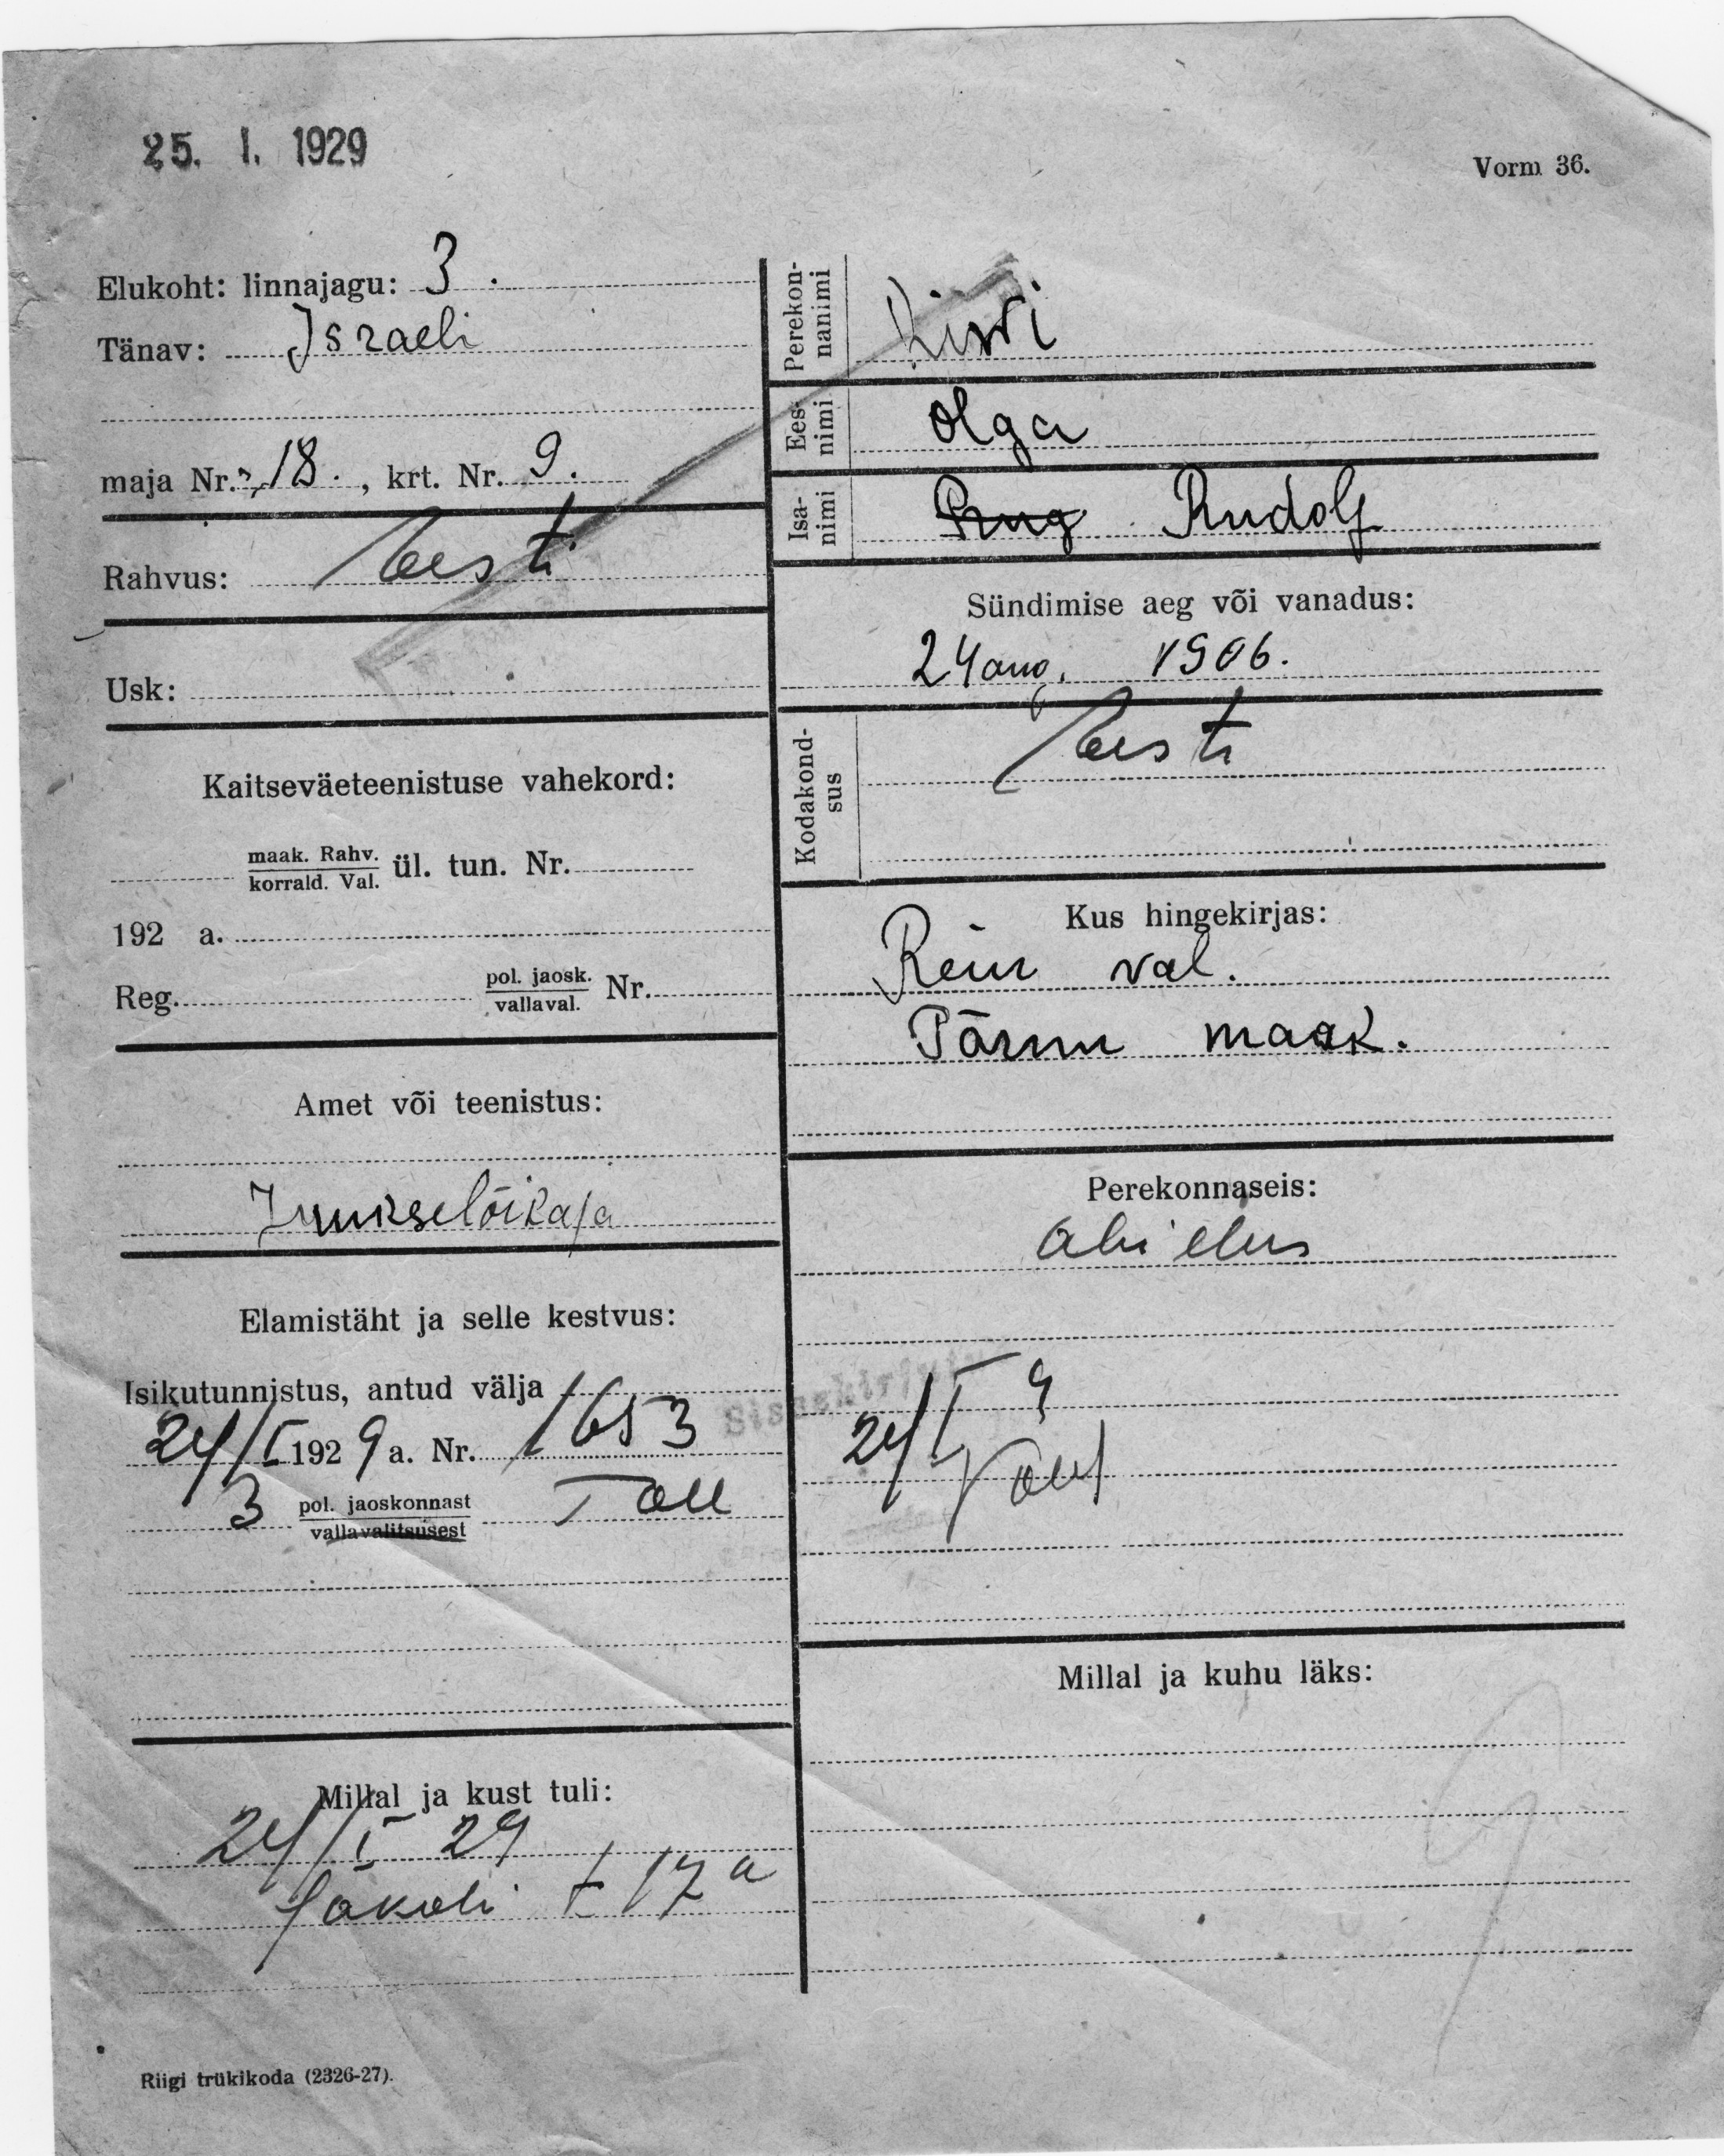 25. I. 1929
Vorm 36.
Elukoht: linnajagu: 3.
Tänav: Israeli
maja Nr. 18., krt. Nr. 9.
Rahvus: Eesti
Usk:
Kaitseväeteenistuse vahekord:
maak. Rahv.
korrald. Val. ül. tun. Nr.
192 a.
Reg. pol. jaosk. Nr.
vallaval.
Amet või teenistus:
Juukselõikaja
Elamistäht ja selle kestvus:
Isikutunnistus, antud välja
24/I 1929 a. Nr. 1653
3 pol. jaoskonnast Tall
vallavalitsusest
Millal ja kust tuli:
24/I 29
Jakobi t 17a
Riigi trükikoda (2326-27).
Perekon-
nanimi
Ees-
nimi Olga
Isa-
nimi Rudolf
Sündimise aeg või vanadus:
24 aug. 1906.
Kodakond-
sus Eesti
Kus hingekirjas:
val.
Pärnu maak.
Perekonnaseis:
abielus
Sissekirjutu
24/I 9
Millal ja kuhu läks: